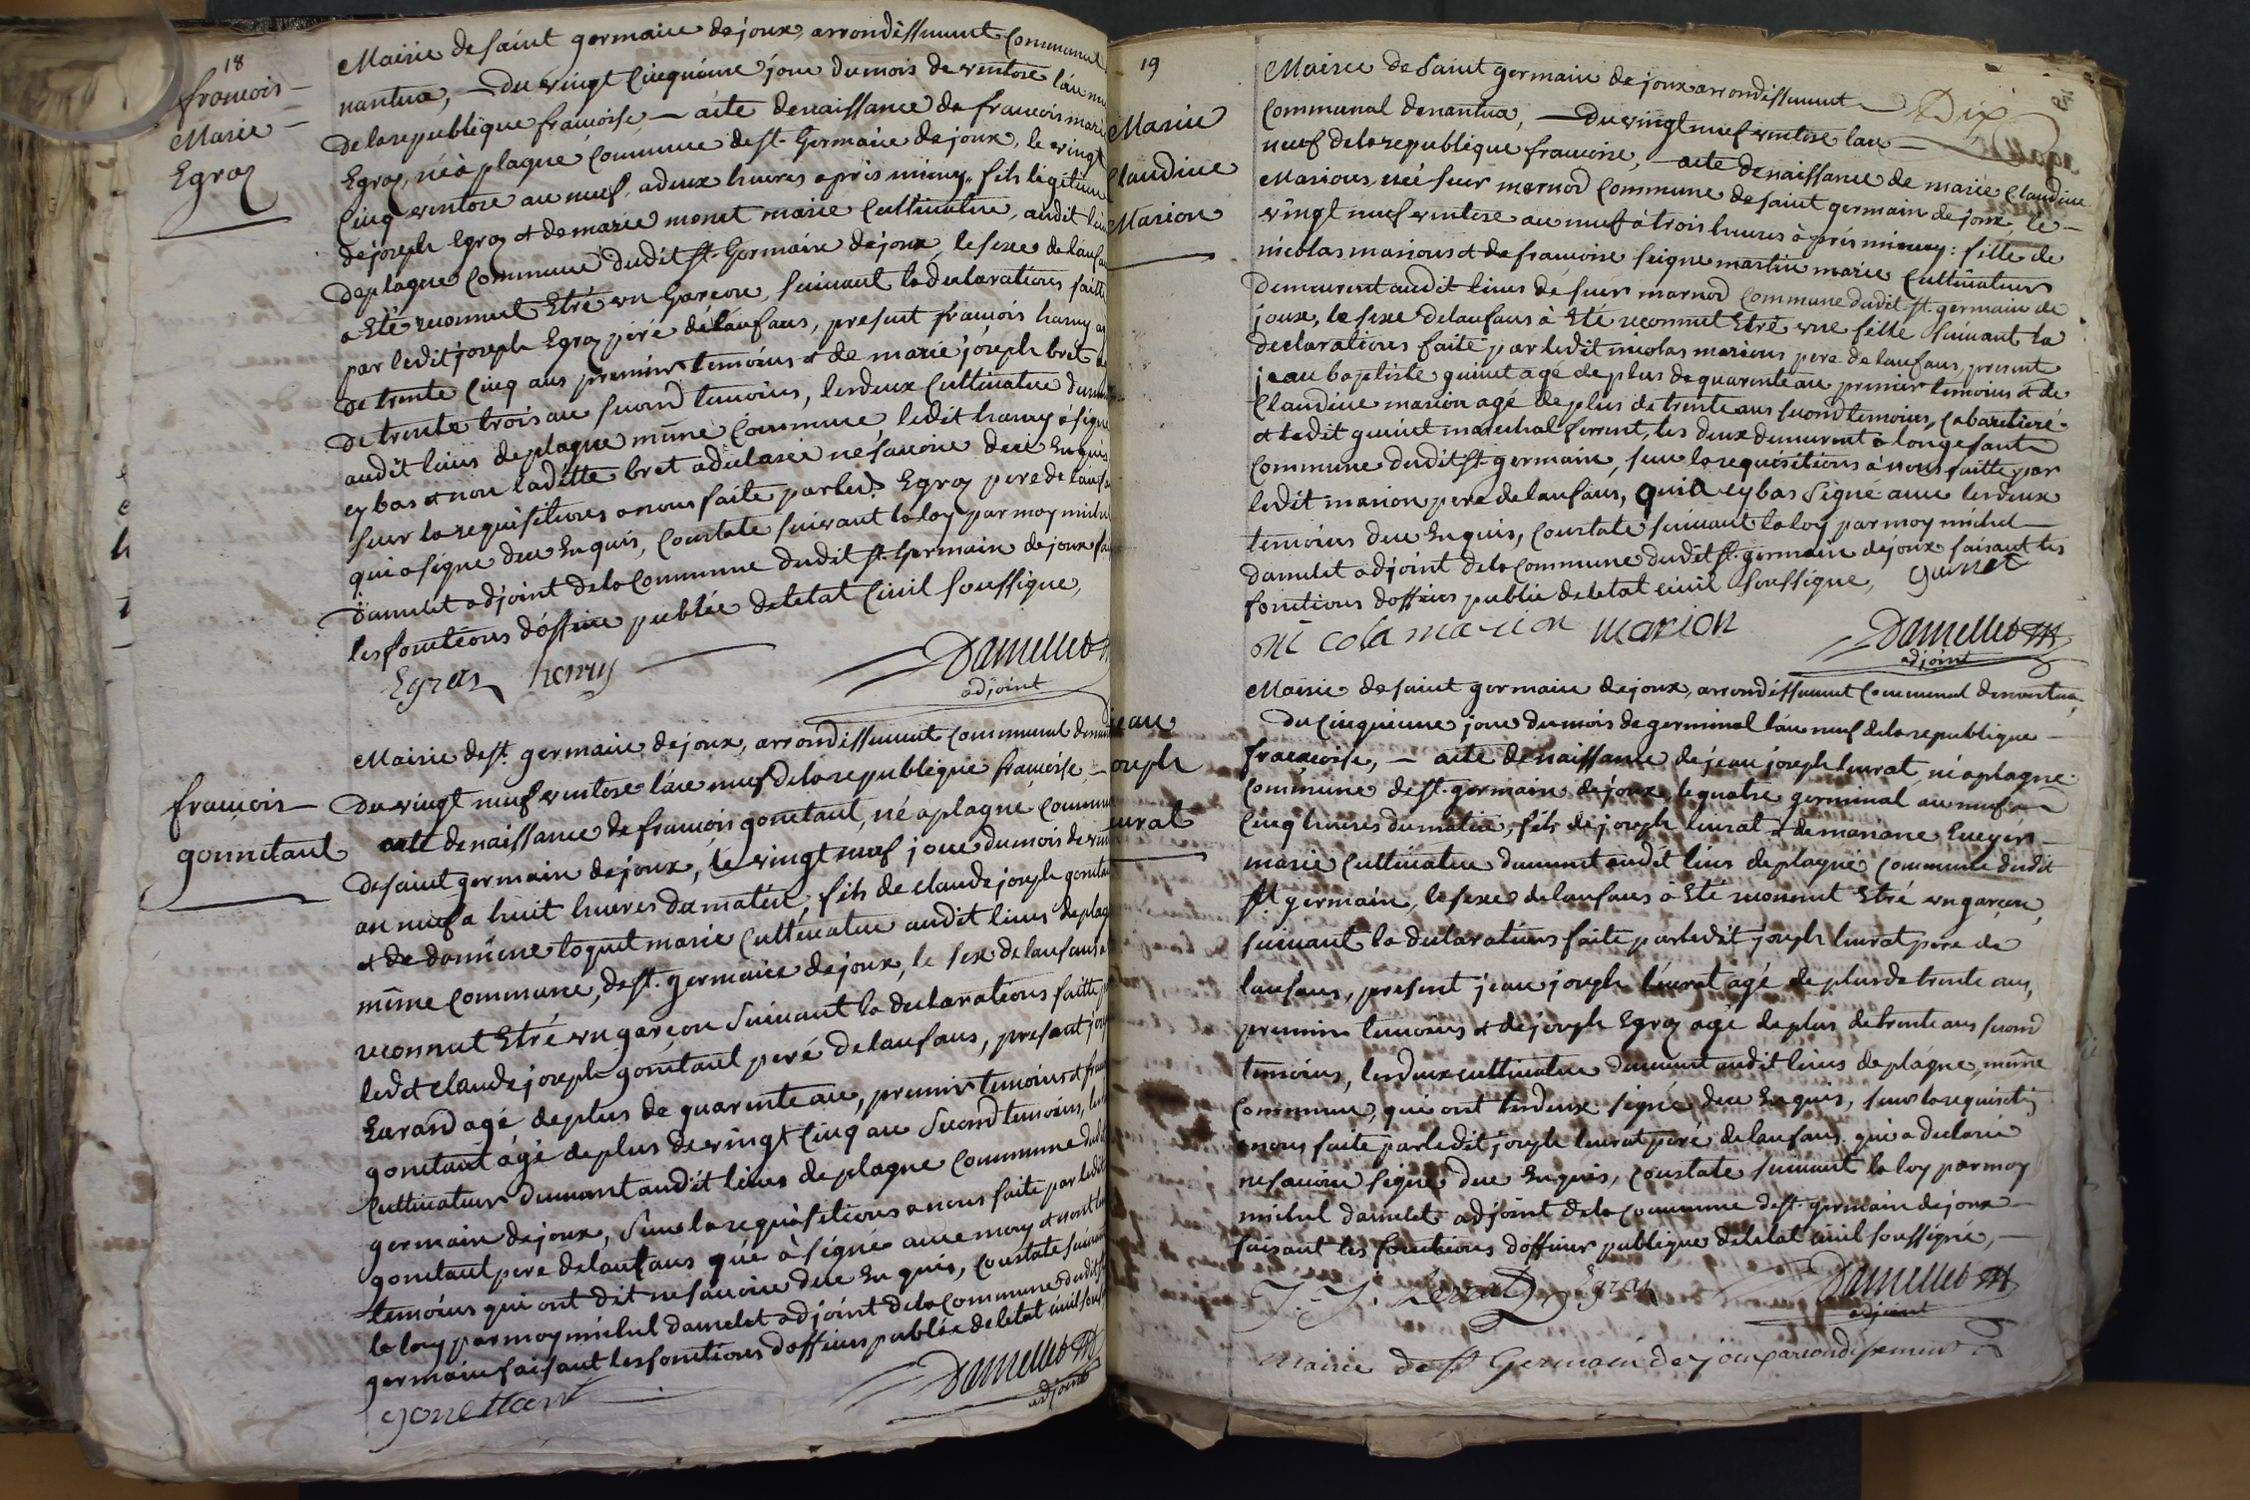 18
françois
Marie
Egraz
Mairie de saint germain de joux, arrondissement Communal
nantua, — du vingt Cinquieme jour du mois de ventose l'an
de la republique françoise — acte de naissance de françois marie
Egraz, né à plagne Commune de st. Germain de joux, le vingt
Cinq ventose an neuf, a deux heures après midy, fils legitime
de joseph Egraz et de marie monet marie Cultivateur, audit lieu
de plagne Commune dudit st. Germain de joux, le sexe de lanfans
a Eté reconnut Etré un Garçon, suivant la declarations faitte
par ledit joseph Egraz peré de lanfans, present françois hanry
de trente Cinq ans premier temoins et de marie joseph bret
de trente trois an second temoins, les deux Cultivateur
audit lieus de plagne mêmé Commune ledit hanry a signé
cy bas et non laditte bret a declaréé né savoir duë Enquis
sur la requisitions a nous faite par led. Egraz pere de lanfans
qui a signe due Enquis, Constate suivant la loy par moy michel
Damelet adjoint de la Commune dudit st. Germain de joux
les fonctions d'officier publie de letat Civil soussigne,
Egraz henry
Damellet
adjoint
françois
gonnetant
Mairie de st. germain de joux, arrondissement Communal de
Du vingt neuf ventose l'an neuf de la republique françoise —
acte de naissance de françois gonetant, né a plagne Commune
de saint germain de joux, le vingt neuf jour du mois de
an neuf a huit heures du matin, fils de claude joseph
et de marie Cultivateur audit lieus de
même Commune, de st. germain de joux, le sex de lanfans
reconnut Etré un garçon suivant la declarations faitte
ledt claude joseph gonetant peré de lanfans, present
agé de plus de quarente an, premier temoins et
gonetant agé de plus de vingt Cinq an second temoins,
Cultivateur demurant audit lieus de plagne Commune
germain de joux, sur la requisitions a nous faite par ledit
gonetant pere de lanfans que à signé avec moy et
temoins qui ont dit ne savoir due Enquis, Constate suivant
la loy par moy michel damelet adjoint de la Commune dudit st
germain faisant les fonctions d'officier publie de letat civil
gonettant
Damellet
adjoint
19
Marie
Claudine
Marion
Mairie de Saint germain de joux arrondissement Dix
Communal de nantua, — du vingt neuf ventose lan —
neuf de la republique françoise, — acte de naissance de marie Claudine
Marions, neé sur marnod Commune de saint germain de joux, le —
vingt neuf ventose an neuf à trois heures à près midy: fille de
nicolas marions et de françoise seigne martin marie Cultivateur
demurent audit lieus de sur marnod Commune dudit st. germain de
joux, le sexe de lanfans à Eté reconnut Etré une fille suivant la
declarations faité par ledit nicolas marions pere de lanfans, present
jean baptiste quinet agé de plus de quarente an premier temoins et de
Claudine marion agé de plus de trente ans second temoins, Cabaretieré
et ledit quinet marechal ferrent, les deux demurent a longefant
Commune dudit st. germain, sur la requisitions à nous faitte par
ledit marion pere de lanfans, qui a cy bas signé avec les deux
temoins due Enquis, Constate suivant la loy par moy michel —
damelet adjoint de la Commune dudit st. germain de joux faisant les
fonctions d'officier publie de letat civil soussigne, quinet
ni cola marion marion
Damellet
adjoint
jean
joseph
levrat
Mairie de saint germain de joux, arrondissement Communal de nantua,
du Cinquieme jour du mois de germinal lan neuf de la republique —
françoise, — acte de naissance de jean joseph levrat, né a plagne
Commune de st. germain de joux le quatre germinal an neuf a
Cinq heures du matin, fils de joseph levrat et de mariane
marie Cultivateur demurent audit lieus de plagne Commune dudit
st. germain, le sexe de lanfans à Eté reconnut Etré un garçon,
suivant la declarations faite par ledit joseph levrat pere de
lanfans, present jean joseph levrat agé de plus de trente ans,
premier temoins et de joseph Egraz agé de plus de trente ans second
temoins, les deux cultivateur demurent audit lieus de plagne, même
Commune, qui ont les deux signé due Enquis, sur la requisition
a nous faite par ledit joseph levrat peré de lanfans qui a declaréé
ne savoir signé due Enquis, Constate suivant la loy par moy
michel damelet adjoint de la Commune de st. germain de joux
faisant les fonctions d'officier publique de letat civil soussigné, —
J. J. Levrat Egraz
Damellet
adjoint
Mairie de st Germain de joux arrondissement